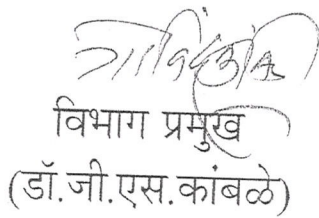 विभाग प्रमुख
(डॉ.जी.एस.कांबळे)